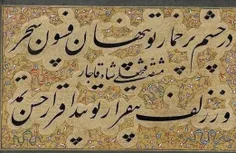 در چشم پر خمار تو پنهان فسون سحر
مشقه فتحعلی شاه قاجار
در زلف بیقرار تو پیدا قرار حسن